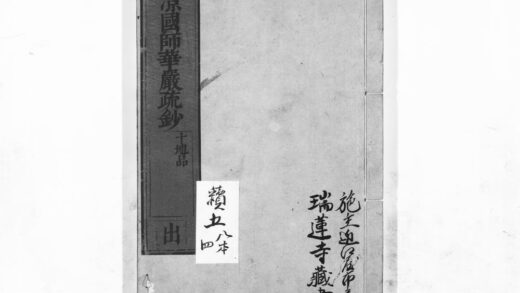 涼國師華嚴疏鈔
十地品
出
續五
八本
四
施主
瑞蓮寺藏